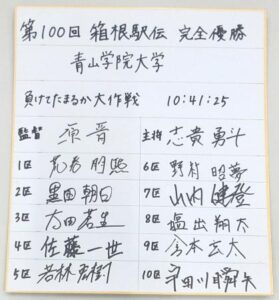 第100回 箱根駅伝 完全優勝
青山学院大学
負けてたまるか大作戦 10:41:25
監督 原晋 主将 志貴勇斗
1区 荒巻朋熙 6区 野村昭夢
2区 黒田朝日 7区 山内健登
3区 太田蒼生 8区 塩出翔太
4区 佐藤一世 9区 倉本玄太
5区 若林宏樹 10区 宇田川瞬矢